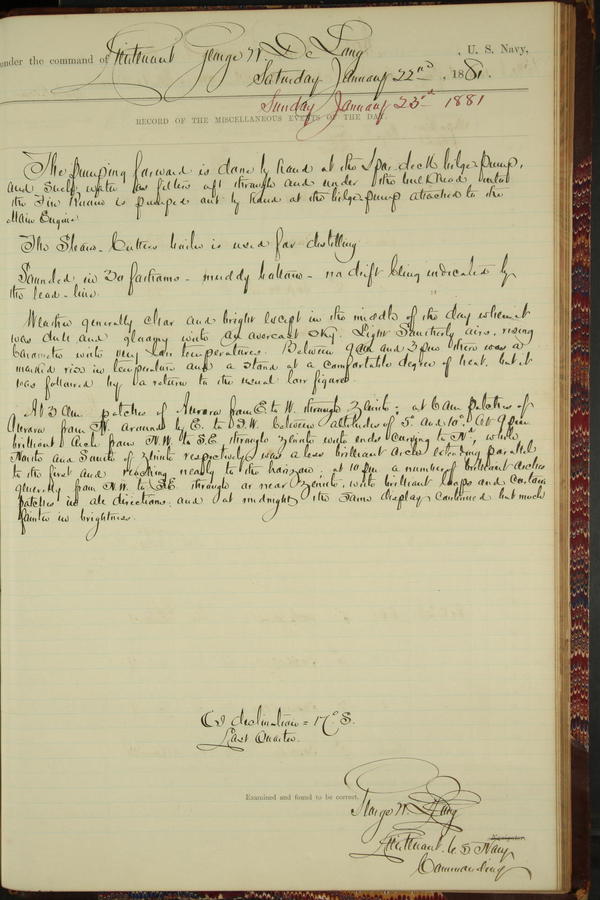 under the command of Lieutenant George W. De Long, U. S. Navy,
Saturday January 22nd, 1881.
Sunday January 23rd 1881
RECORD OF THE MISCELLANEOUS EVENTS OF THE DAY.
The Pumping forward is done by hand at the Spar deck bilge pump,
and such water as filters aft through and under the bulkhead into
the Fire Room is pumped out by hand at the bilge pump attached to the
Main Engine
The Steam-Cutters boiler is used for distilling
Sounded in 30 fathoms - muddy bottom - no drift being indicated by
the lead-line.
Weather generally clear and bright except in the middle of the day when it
was dull and gloomy with an overcast sky. Light Southerly airs, rising
barometer with very low temperatures. Between 9 am and 3 pm there was a
marked rise in temperature and a stand at a comfortable degree of heat, but it
was followed by a return to the usual low figures.
At 3 am patches of Aurora from E to W. through Zenith; at 6 am patches of
Aurora from N. around by E. to S.W. between altitudes of 5° and 10°. At 9 pm
brilliant Arch from N.W. to S.E. through zenith with ends curving to Nd, while
North and South of Zenith respectively was a less brilliant arch extending parallel
to the first and reaching nearly to the horizon; at 10 pm a number of brilliant arches
generally from N.W. to S.E. through or near Zenith, with brilliant loops and curtain
patches in all directions; and at midnight the same display continued but much
fainter in brightness.
declination = 17° S.
Last Quarter.
Examined and found to be correct.
George W. De Long
Navigator.
Lieutenant U.S. Navy
Commanding